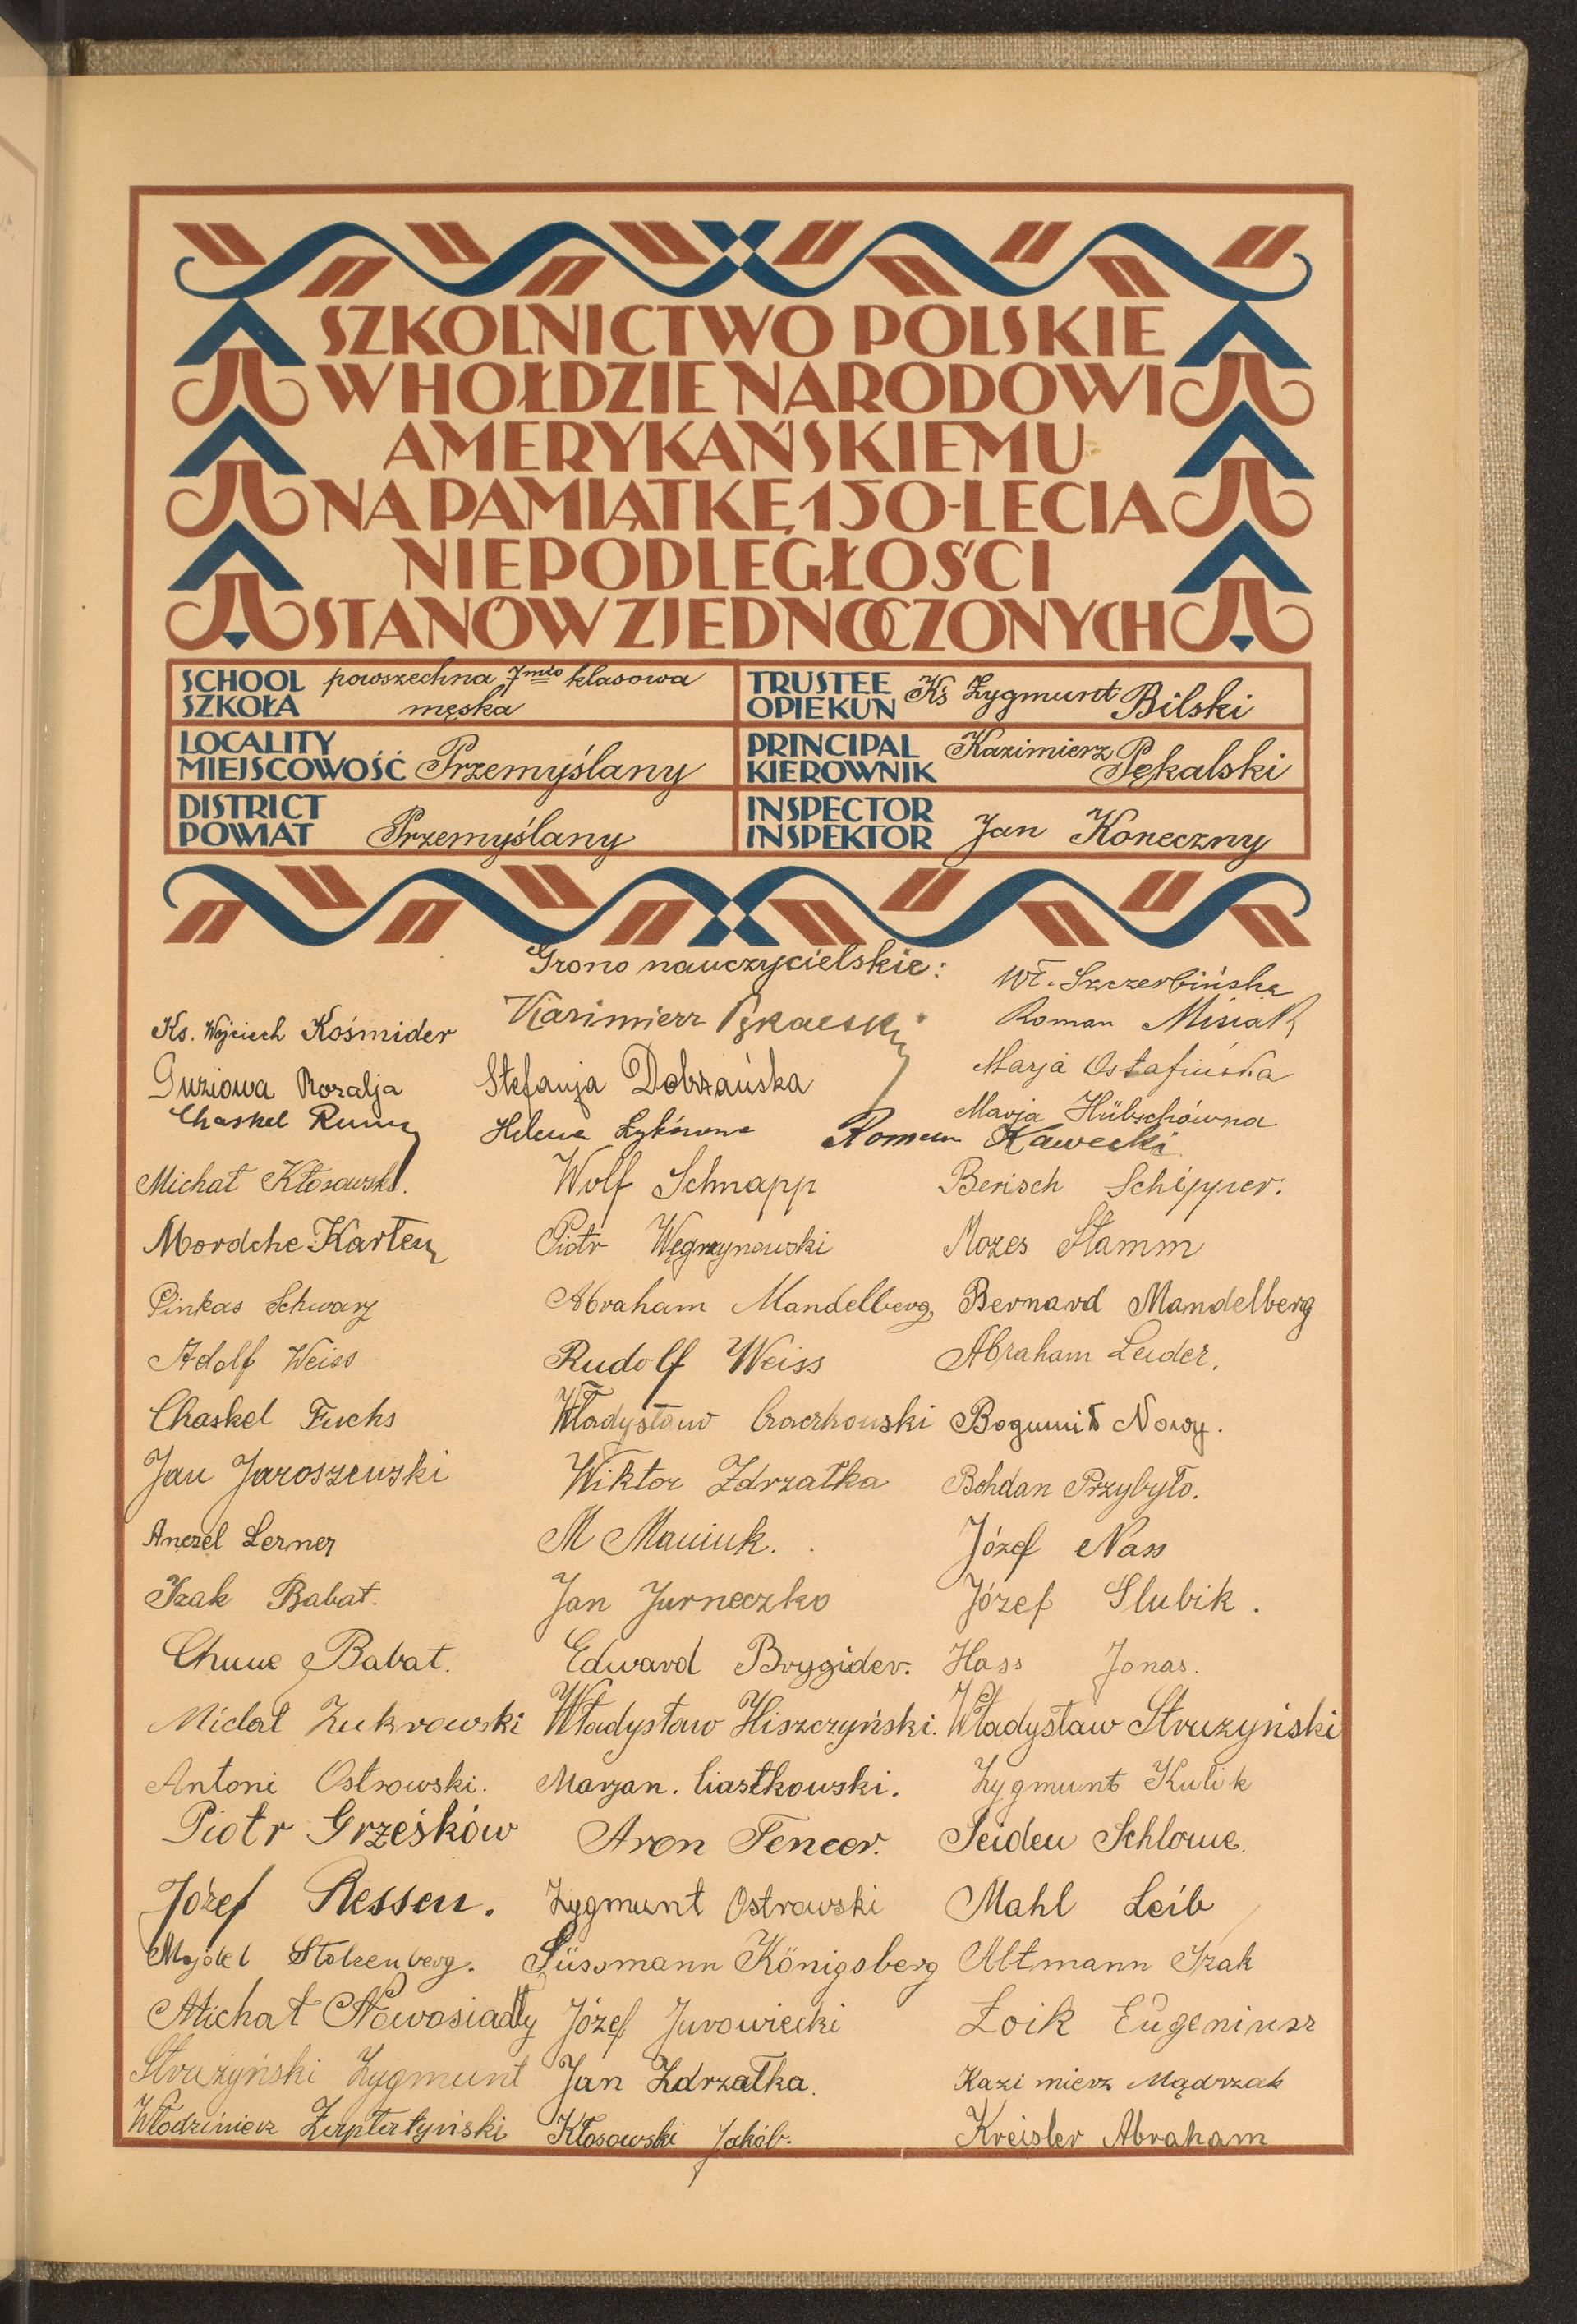 SZKOLNICTWO POLSKIE
W HOŁDZIE NARODOWI
AMERYKAŃSKIEMU
NA PAMIĄTKĘ 150-LECIA
NIEPODLEGŁOŚCI
STANÓW ZJEDNOCZONYCH
SCHOOL
SZKOŁA
powszechna 7mio klasowa
męska
TRUSTEE
OPIEKUN
Ks Zygmunt Bilski
LOCALITY
MIEJSCOWOŚĆ
Przemyślany
PRINCIPAL
KIEROWNIK
Kazimierz Pękalski
DISTRICT
POWIAT
Przemyślany
INSPECTOR
INSPEKTOR
Jan Koneczny
Grono nauczycielskie:
Wł. Szczerbińska
Ks. Wojciech Kośmider
Kazimierz Pękalski
Roman Misiak
Guziowa Rozalja
Stefanja Dobrzańska
Marja Ostafińska
Chaskel
Helena Łykówna
Marja Hübschówna
Roman Kawecki
Michał Kłosowski.
Wolf Schnapp
Berisch Schipper.
Mordche Karten
Piotr Węgrzynowski
Mozes Stamm
Pinkas Schwarz
Abraham Mandelberg
Bernard Mandelberg
Adolf Weiss
Rudolf Weiss
Abraham Leider.
Chaskel Fuchs
Władysław Czaczkowski
Bogumił Nowy.
Jan Jaroszewski
Wiktor Zdrzałka
Bohdan Przybyło.
Anczel Lerner
M Maniuk.
Józef Nass
Izak Babat.
Jan Jurneczko
Józef Slubik.
Chune Babat.
Edward Brygider.
Hass Jonas.
Michał Zukrowski
Władysław Hiszczyński.
Władysław Strużyński
Antoni Ostrowski.
Marjan. Ciastkowski.
Zygmunt Kulik
Piotr Grześków
Aron Fencer.
Seiden Schlome.
Józef Ressen.
Zygmunt Ostrowski
Mahl Leib
Stolzenberg.
Süssmann Königsberg
Altmann Izak
Michał Nowosiadły
Józef Jurowiecki
Łoik Eugeniusz
Strużyński Zygmunt
Jan Zdrzałka.
Kazimierz Mądrzak
Włodzimierz
Kłosowski Jakób.
Kreisler Abraham